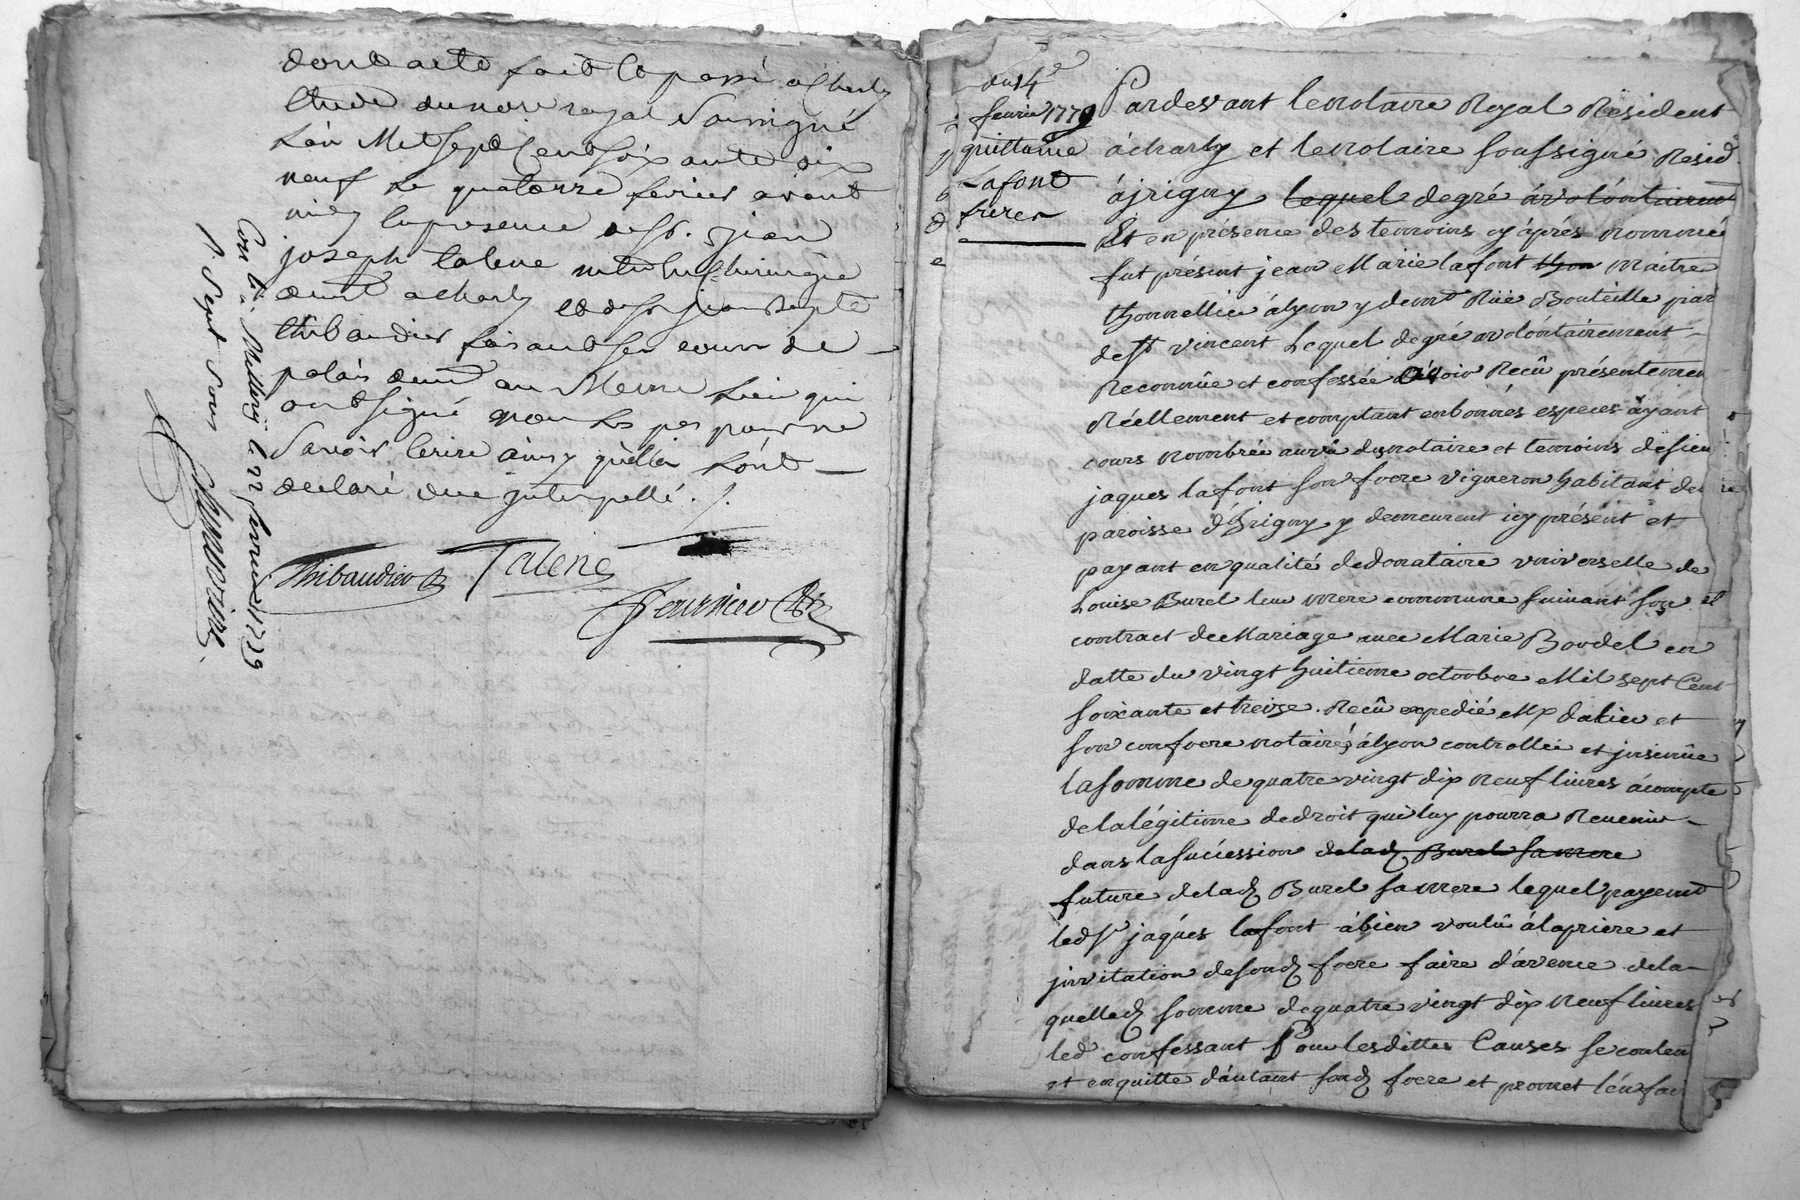 dont acte fait et passé a charly
étude du no.re royal soussigné
l'an Mil sept cent soix ante dix
neuf le quatorze fevrier avant
midy en presence de sr. jean
joseph talene me chirurgien
demt a charly et de sr jean
thibaudier faisant ses cours de
palais demt au Meme lieu qui
ont signé non les parties pour ne
savoir écrire ainsy qu'elles l'ont
declaré de ce interpellé ./.
Thibaudier Talene
Con.lé a Millery le 22 fevrier 1779
R. Sept sous
du 14e
fevrier 1779
quittance
Lafont
freres
Pardevant le notaire Royal Résident
à charly et le notaire soussigné Resid.
à jrigny lequel degré àvolóntairemt
Et en présence des temoins cy áprés nommé
fut présent jean Marie lafont thon Maitre
thonnellier àlyon y demt Rüe Bouteille par
de st vincent Lequel degré avolóntairement
Reconnüe et confessée avoir Recû présentemen
Réellement et comptant enbonnes especes áyant
cours nombrée auvû du notaire et temoins de sieu
jaques lafont son frere vigneron habitant de
paroisse d'jrigny y demeurent icy présent et
payant en qualité de donataire vniverselle de
Louise Burel leur mere commune suivant son
contract de Mariage avec Marie Bordel en
datte du vingt huitieme octoobre Mil sept Cent
soixante et treize. Recû expedié Me dalier et
son confrere notaires àlyon controllée et jnsinüe
la somme de quatre vingt dix neuf livres ácompte
de la légitime de droit qui luy pourra Revenir
dans la súccession de lad. Burel sa mere
future de lad. Burel sa mere lequel payemt
led sr jaqúes lafont àbien voulû àlapriere et
jnvitation de sond. frere faire d'avence de la
quelle d. somme de quatre vingt dix neuf livres
led confessant Pour lesdittes Causes se conten
et en quitte d'áutant sond. frere et promet l'én fai